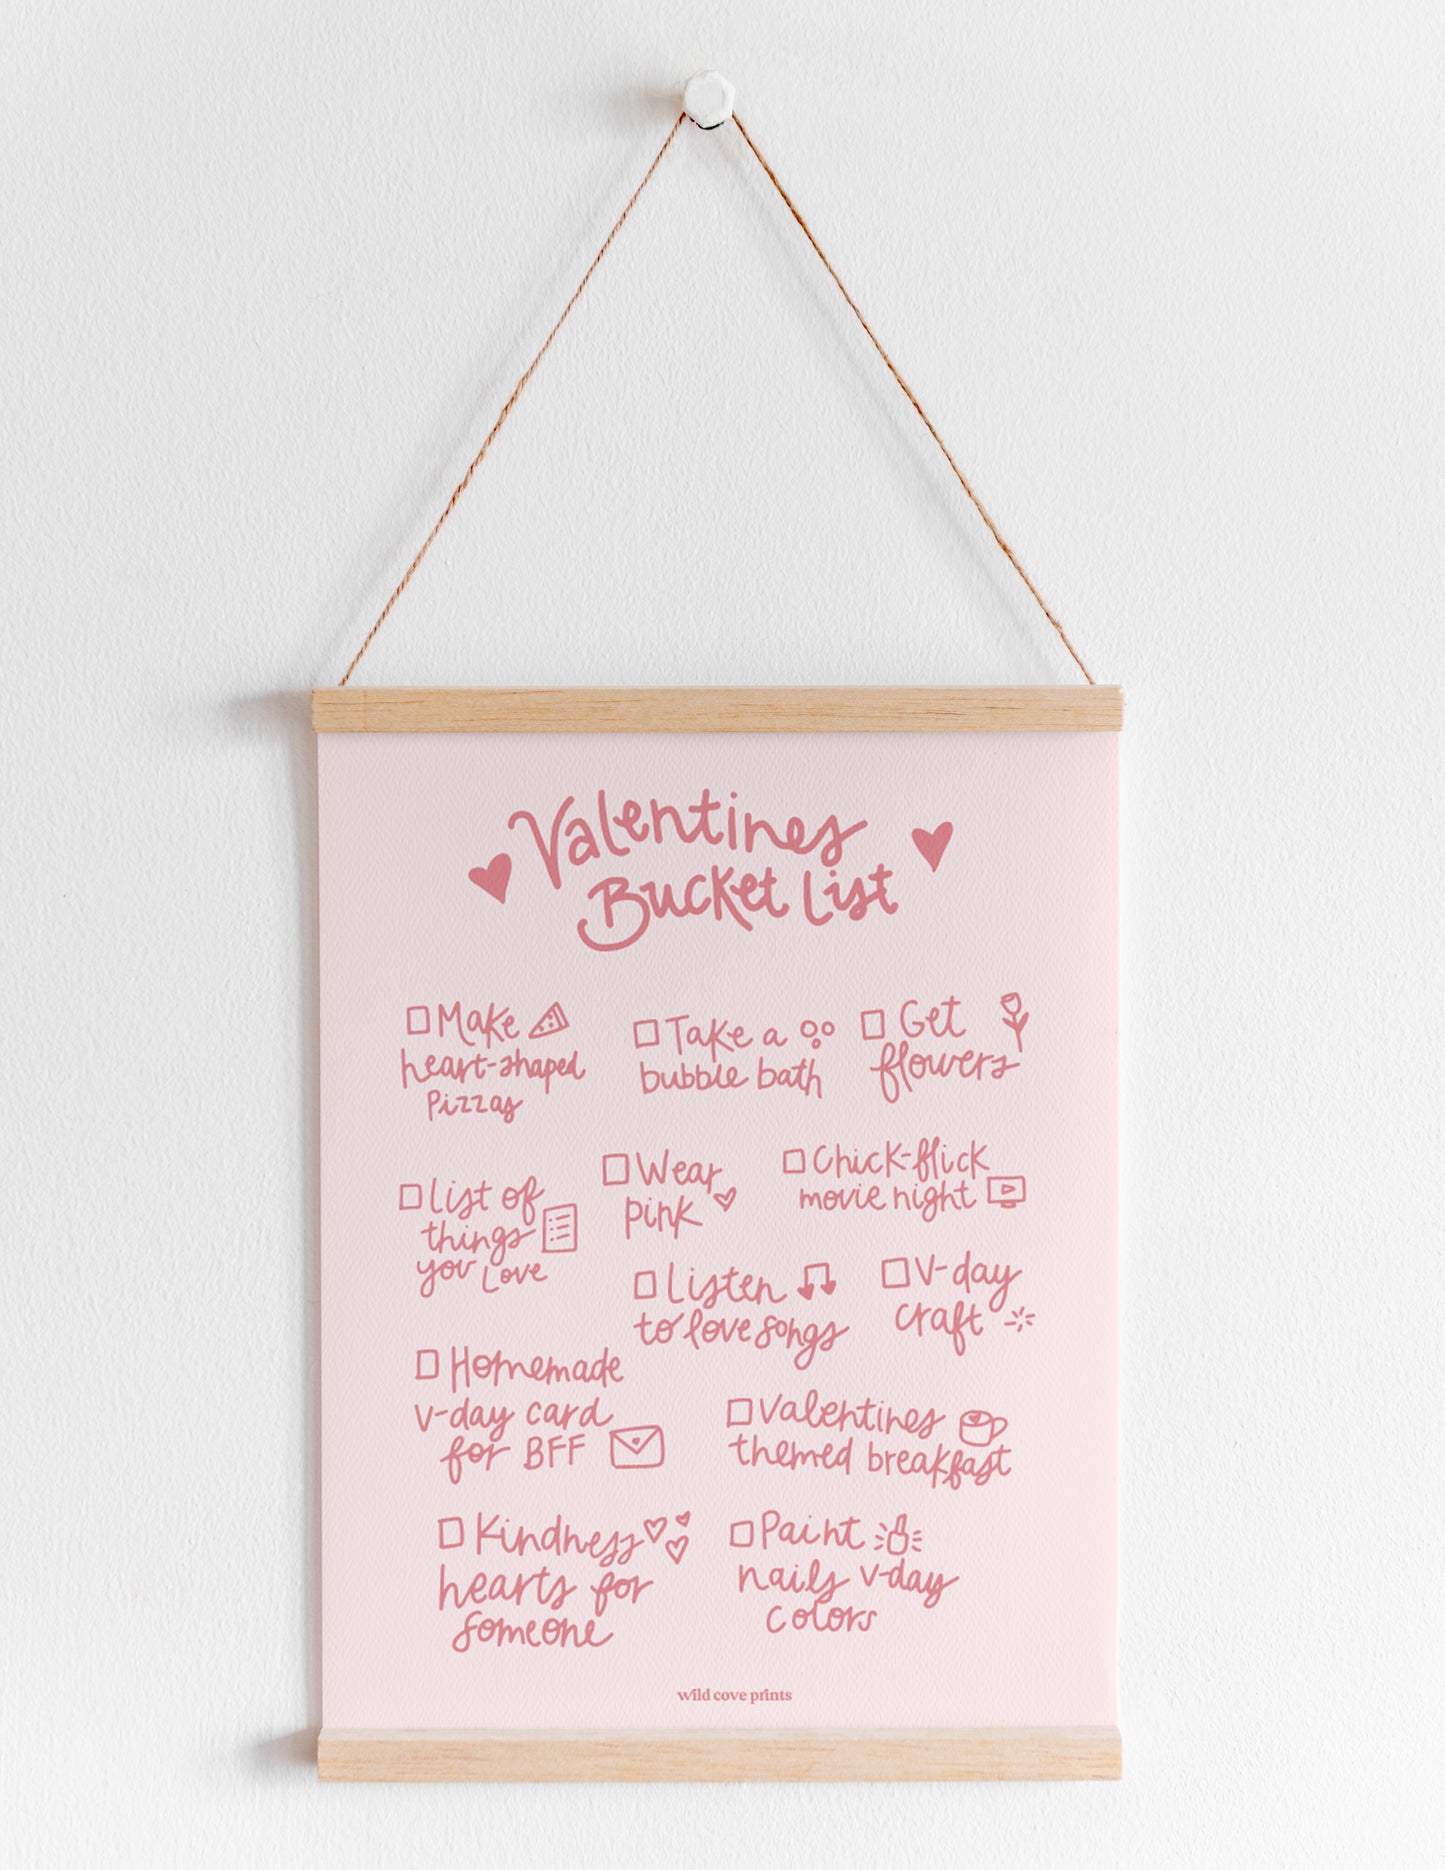 Valentines
Bucket List
Make
heart-shaped
pizzas
Take a
bubble bath
Get
flowers
List of
things
you love
Wear
pink
Chick-flick
movie night
Listen
to love songs
V-day
craft
Homemade
v-day card
for BFF
Valentines
themed breakfast
Kindness
hearts for
someone
Paint
nails v-day
colors
wild cove prints